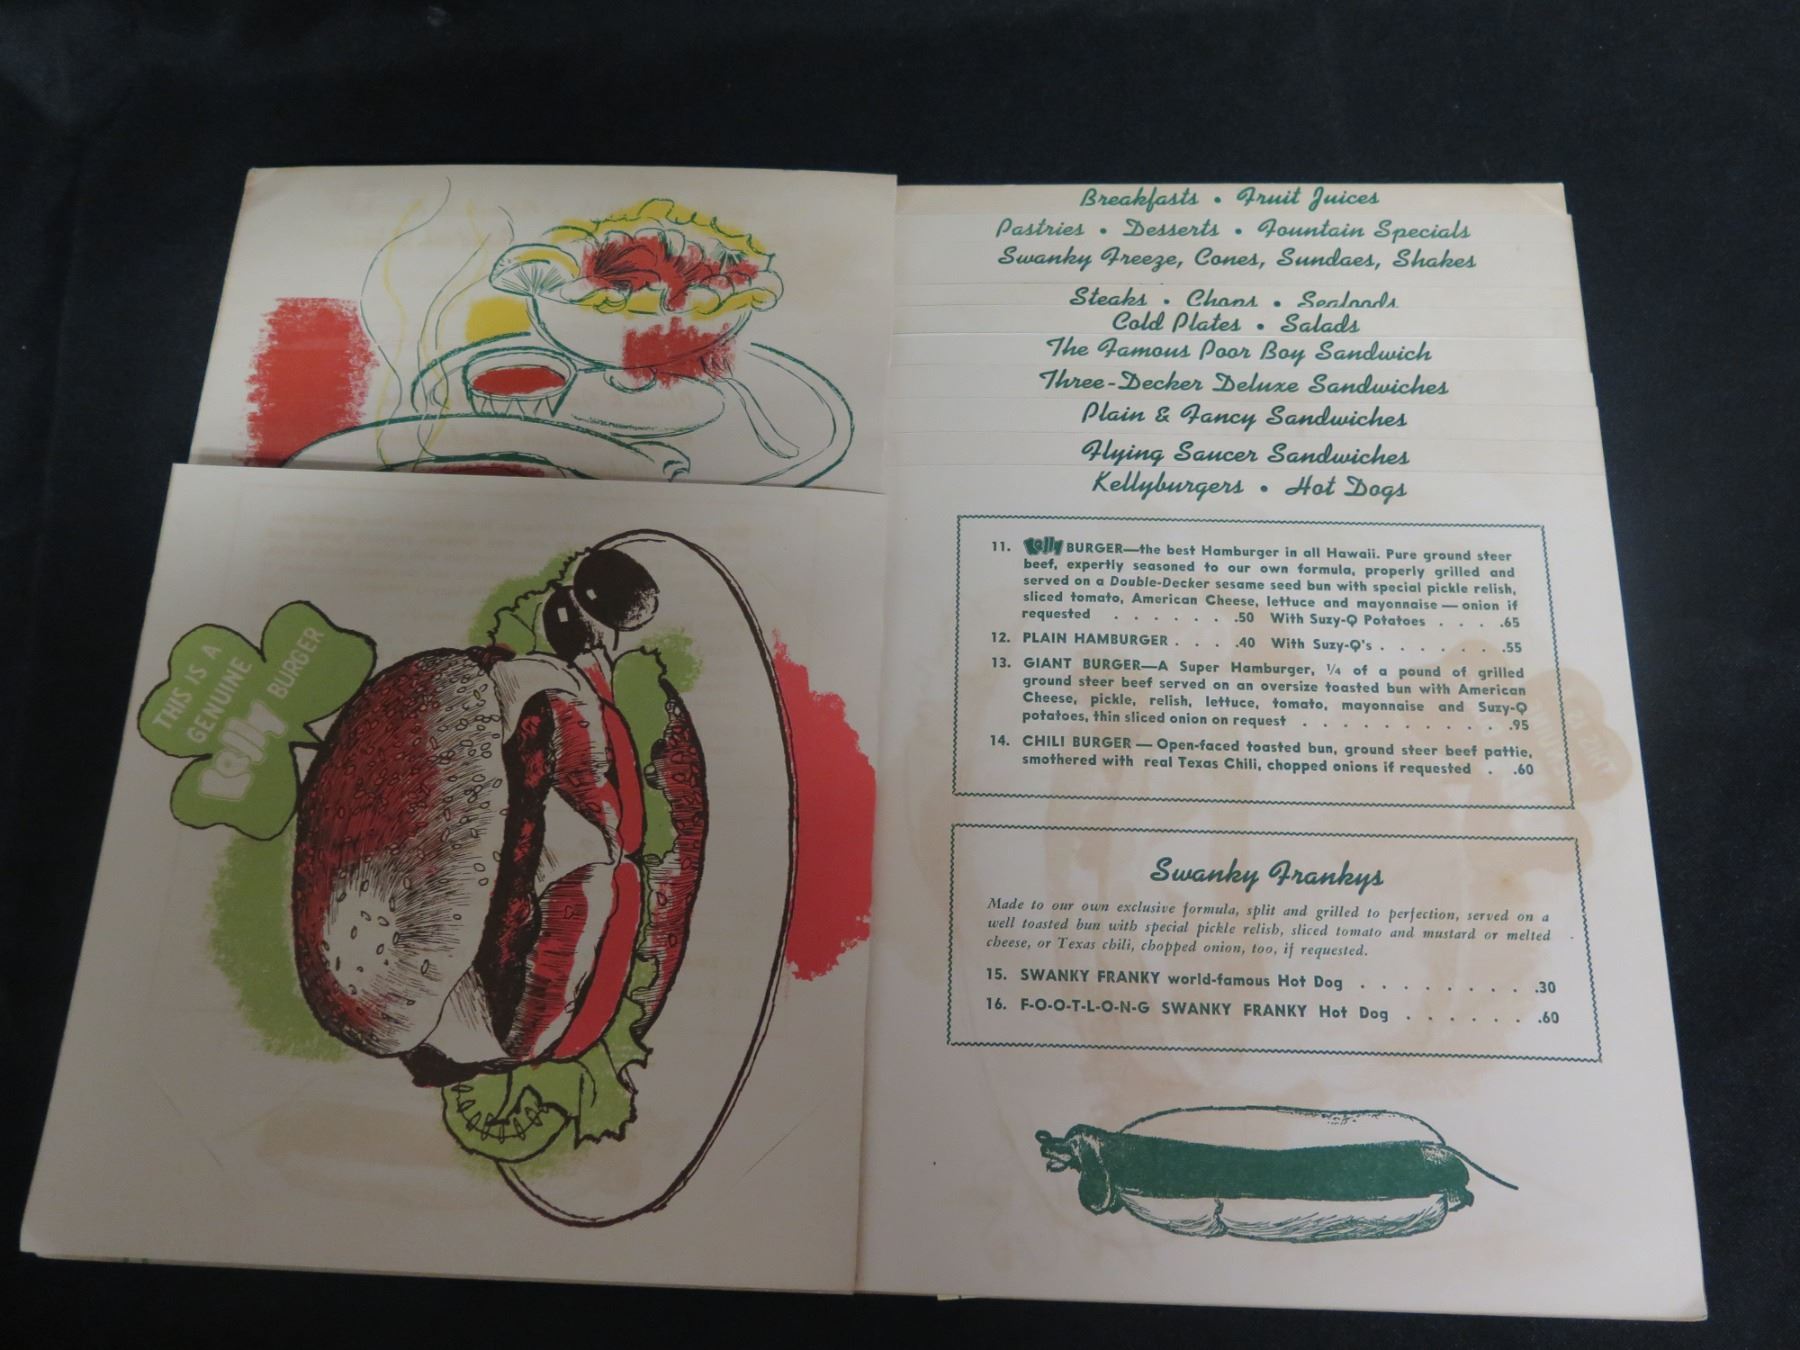 THIS IS A
GENUINE
Kelly BURGER
Breakfasts • Fruit Juices
Pastries • Desserts • Fountain Specials
Swanky Freeze, Cones, Sundaes, Shakes
Steaks • Chops • Seafoods
Cold Plates • Salads
The Famous Poor Boy Sandwich
Three-Decker Deluxe Sandwiches
Plain & Fancy Sandwiches
Flying Saucer Sandwiches
Kellyburgers • Hot Dogs
11. Kelly BURGER—the best Hamburger in all Hawaii. Pure ground steer
beef, expertly seasoned to our own formula, properly grilled and
served on a Double-Decker sesame seed bun with special pickle relish,
sliced tomato, American Cheese, lettuce and mayonnaise — onion if
requested . . . . . . .50 With Suzy-Q Potatoes . . . .65
12. PLAIN HAMBURGER . . . .40 With Suzy-Q's . . . . . . . .55
13. GIANT BURGER—A Super Hamburger, 1/4 of a pound of grilled
ground steer beef served on an oversize toasted bun with American
Cheese, pickle, relish, lettuce, tomato, mayonnaise and Suzy-Q
potatoes, thin sliced onion on request . . . . . . . . . . .95
14. CHILI BURGER — Open-faced toasted bun, ground steer beef pattie,
smothered with real Texas Chili, chopped onions if requested . .60
Swanky Frankys
Made to our own exclusive formula, split and grilled to perfection, served on a
well toasted bun with special pickle relish, sliced tomato and mustard or melted
cheese, or Texas chili, chopped onion, too, if requested.
15. SWANKY FRANKY world-famous Hot Dog . . . . . . . . . .30
16. F-O-O-T-L-O-N-G SWANKY FRANKY Hot Dog . . . . . . .60